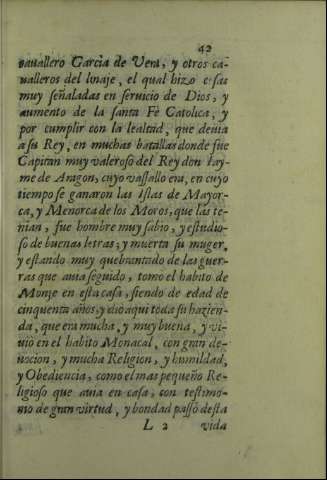 42
cauallero Garcia de Vera, y otros ca-
ualleros del linaje, el qual hizo cosas
muy señaladas en seruicio de Dios, y
aumento de la santa Fè Catolica, y
por cumplir con la lealtad, que deuia
a su Rey, en muchas batallas donde fue
Capitan muy valeroso del Rey don Iay-
me de Aragon, cuyo vassallo era, en cuyo
tiempo se ganaron las Islas de Mayor-
ca, y Menorca de los Moros, que las te-
nian, fue hombre muy sabio, y estudio-
so de buenas letras; y muerta su muger,
y estando muy quebrantado de las guer-
ras que auia seguido, tomo el habito de
Monje en esta casa, siendo de edad de
cinquenta años, y dio aqui toda su hazien-
da, que era mucha, y muy buena, y vi-
uio en el habito Monacal, con gran de-
uocion, y mucha Religion, y humildad,
y Obediencia, como el mas pequeño Re-
ligioso que auia en casa, con testimo-
nio de gran virtud, y bondad passò desta
L 2 vida